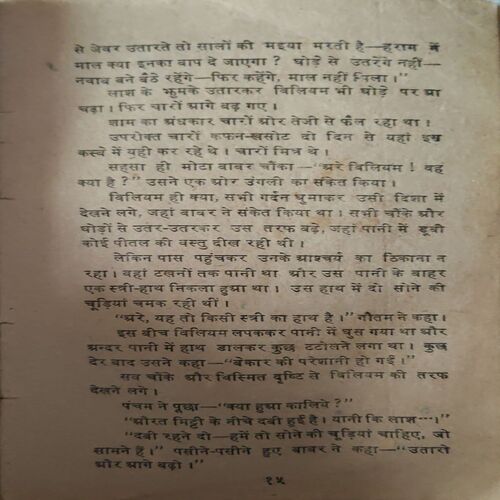 से जेवर उतारते तो सालों की मइया मरती है—हराम में
माल क्या इनका बाप दे जाएगा ? घोड़े से उतरेंगे नहीं—
नवाब बने बैठे रहेंगे—फिर कहेंगे, माल नहीं मिला ।"
लाश के झुमके उतारकर विलियम भी घोड़े पर आ
चढ़ा । फिर चारों आगे बढ़ गए ।
शाम का अंधकार चारों ओर तेजी से फैल रहा था ।
उपरोक्त चारों कफन-खसोट दो दिन से यहां इस
कस्बे में यही कर रहे थे । चारों मित्र थे ।
सहसा ही मोटा बाबर चौंका—"अरे विलियम ! वह
क्या है ?" उसने एक ओर उंगली का संकेत किया ।
विलियम ही क्या, सभी गर्दन घुमाकर उसी दिशा में
देखने लगे, जहां बाबर ने संकेत किया था । सभी चौंके और
घोड़ों से उतर-उतरकर उस तरफ बढ़े, जहां पानी में डूबी
कोई पीतल की वस्तु दीख रही थी ।
लेकिन पास पहुंचकर उनके आश्चर्य का ठिकाना न
रहा । वहां टखनों तक पानी था और उस पानी के बाहर
एक स्त्री-हाथ निकला हुआ था । उस हाथ में दो सोने की
चूड़ियां चमक रही थीं ।
"अरे, यह तो किसी स्त्री का हाथ है ।" गौतम ने कहा ।
इस बीच विलियम लपककर पानी में घुस गया था और
अन्दर पानी में हाथ डालकर कुछ टटोलने लगा था । कुछ
देर बाद उसने कहा—"बेकार की परेशानी हो गई ।"
सब चौंके और विस्मित दृष्टि से विलियम की तरफ
देखने लगे ।
पंचम ने पूछा—"क्या हुआ कालिये ?"
"औरत मिट्टी के नीचे दबी हुई है । यानी कि लाश···।"
"दबी रहने दो—हमें तो सोने की चूड़ियां चाहिए, जो
सामने हैं ।" पसीने-पसीने हुए बाबर ने कहा—"उतारो
और आगे बढ़ो ।"
१५